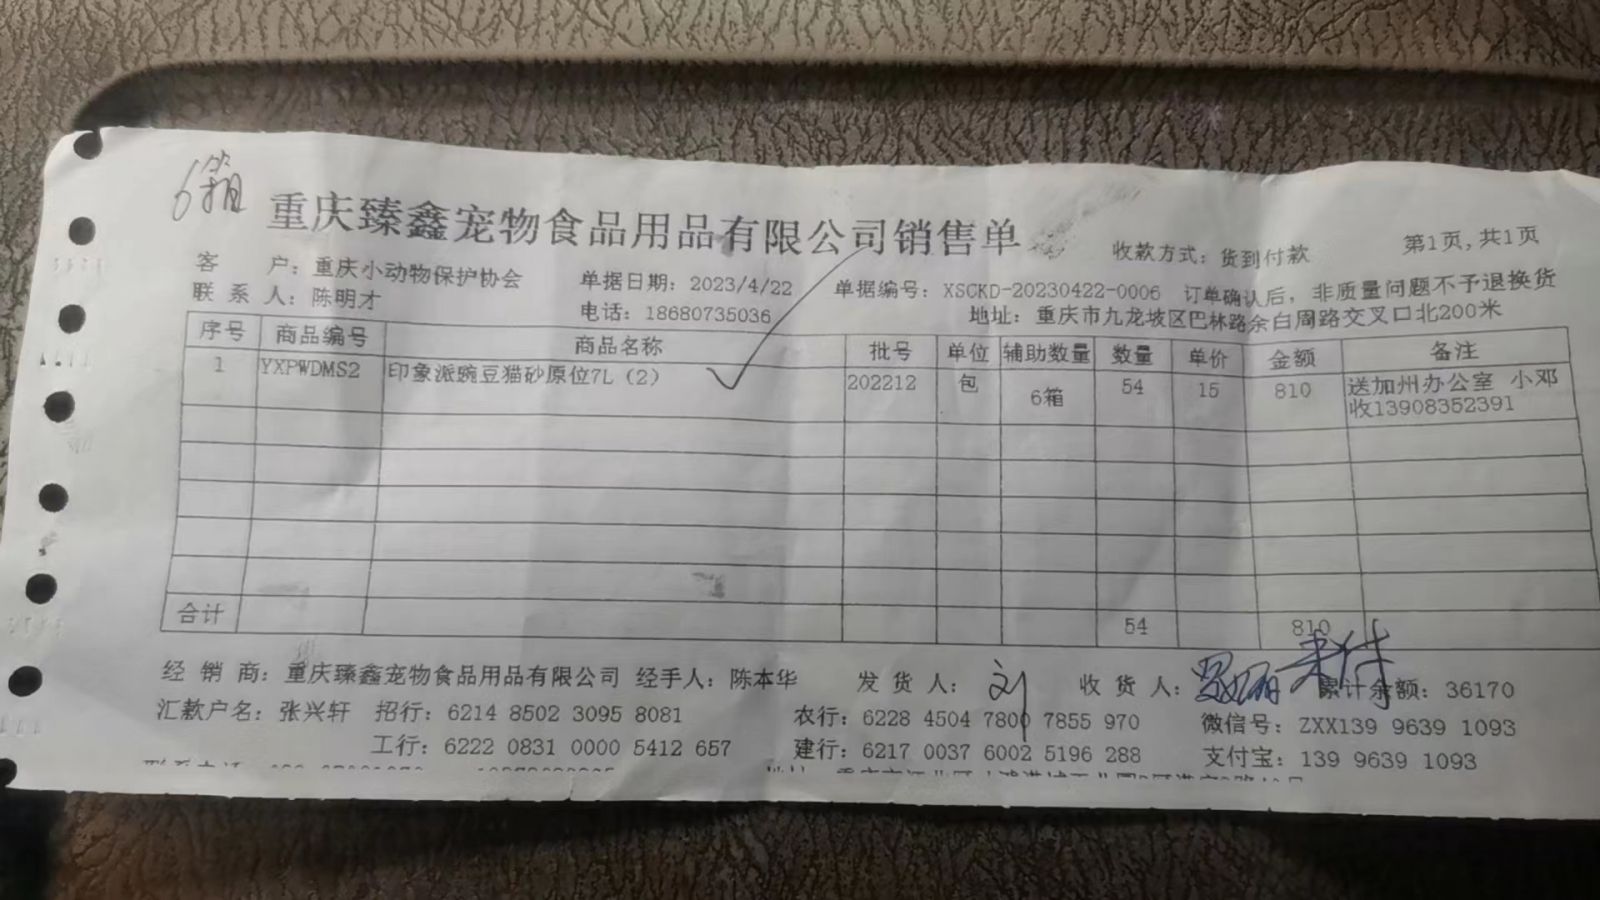 6箱
重庆臻鑫宠物食品用品有限公司销售单
收款方式：货到付款 第1页，共1页
客 户：重庆小动物保护协会 单据日期：2023/4/22 单据编号：XSCKD-20230422-0006 订单确认后，非质量问题不予退换货
联 系 人：陈明才 电话：18680735036 地址：重庆市九龙坡区巴林路余白周路交叉口北200米
序号 商品编号 商品名称 批号 单位 辅助数量 数量 单价 金额 备注
1 YXPWDMS2 印象派豌豆猫砂原位7L（2） 202212 包 6箱 54 15 810 送加州办公室 小邓
收13908352391
合计 54 810
经 销 商：重庆臻鑫宠物食品用品有限公司 经手人：陈本华 发 货 人：刘 收 货 人： 累计余额：36170
汇款户名：张兴轩 招行：6214 8502 3095 8081 农行：6228 4504 7800 7855 970 微信号：ZXX139 9639 1093
工行：6222 0831 0000 5412 657 建行：6217 0037 6002 5196 288 支付宝：139 9639 1093